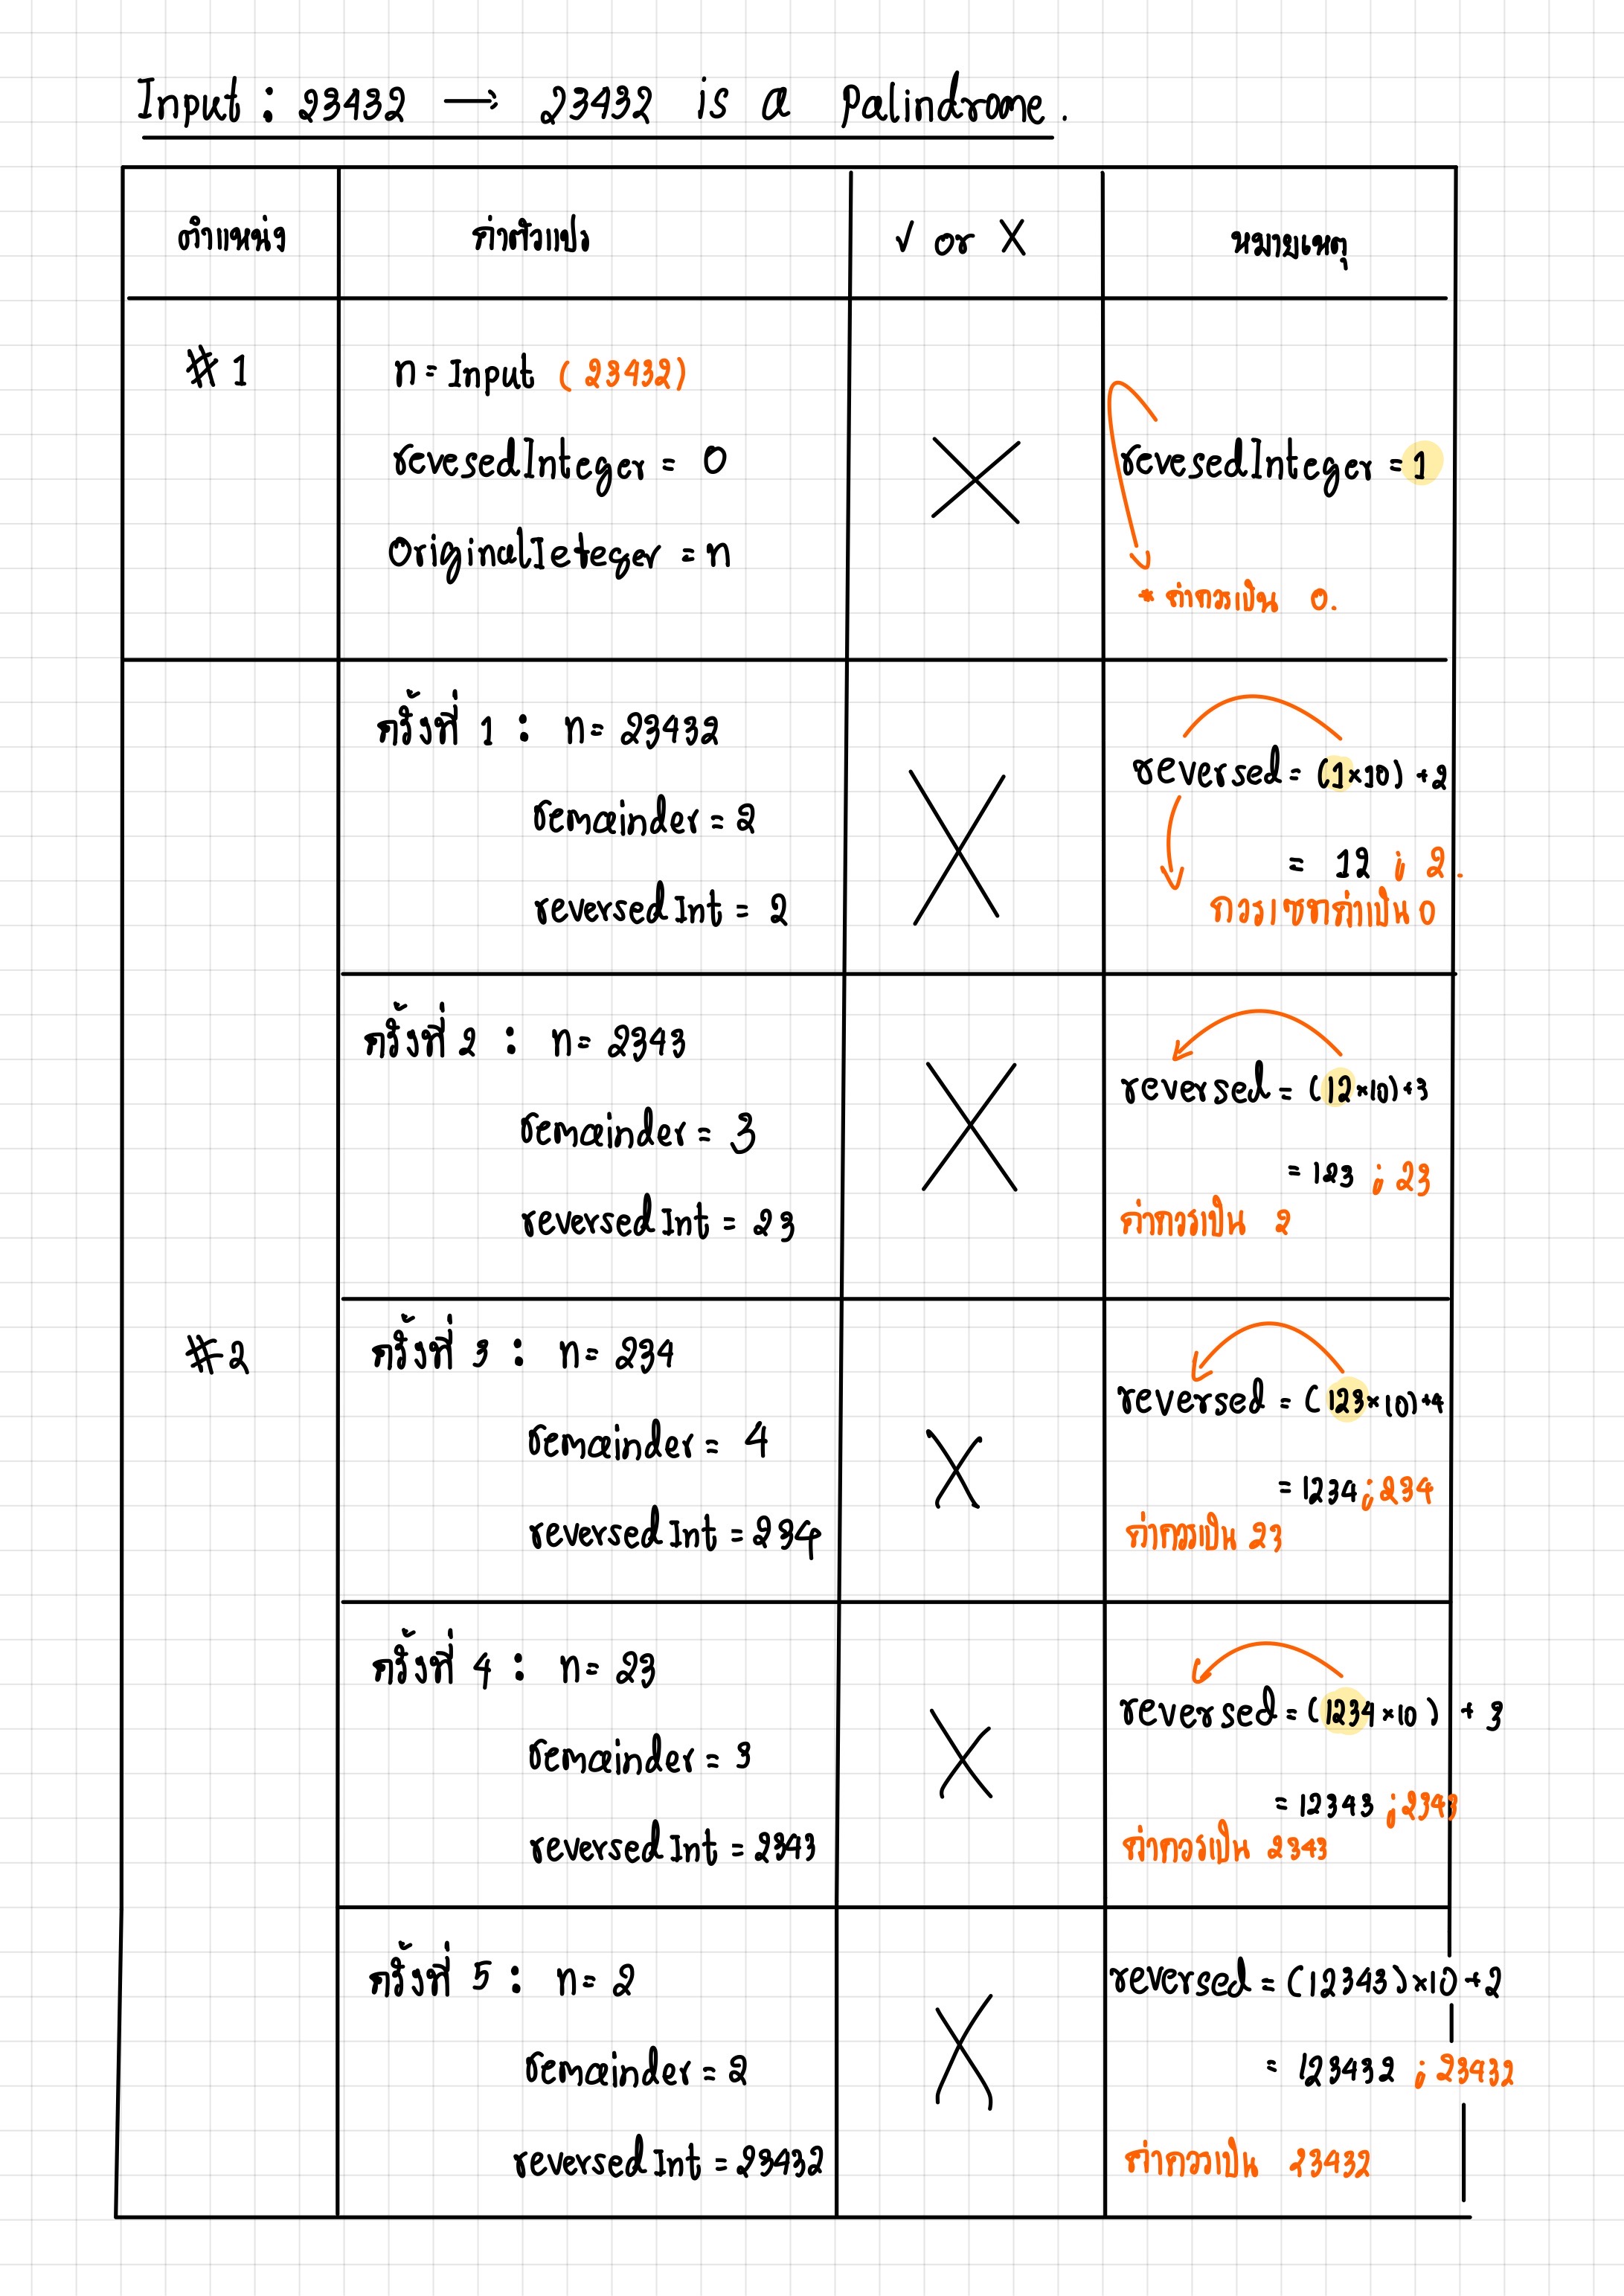 Input : 23432 → 23432 is a palindrome.
ตำแหน่ง ค่าตัวแปร ✓ or X หมายเหตุ
#1
n = Input (23432)
revesedInteger = 0
OriginalIeteger = n
X
revesedInteger = 1
* ค่าควรเป็น 0.
#2
ครั้งที่ 1 : n = 23432
remainder = 2
reversedInt = 2
X
reversed = (1×10) + 2
= 12 ; 2.
ควรเซทค่าเป็น 0
ครั้งที่ 2 : n = 2343
remainder = 3
reversedInt = 23
X
reversed = (12×10) + 3
= 123 ; 23
ค่าควรเป็น 2
ครั้งที่ 3 : n = 234
remainder = 4
reversedInt = 234
X
reversed = (123×10) + 4
= 1234 ; 234
ค่าควรเป็น 23
ครั้งที่ 4 : n = 23
remainder = 3
reversedInt = 2343
X
reversed = (1234×10) + 3
= 12343 ; 2343
ค่าควรเป็น 2343
ครั้งที่ 5 : n = 2
remainder = 2
reversedInt = 23432
X
reversed = (12343)×10 + 2
= 123432 ; 23432
ค่าควรเป็น 23432